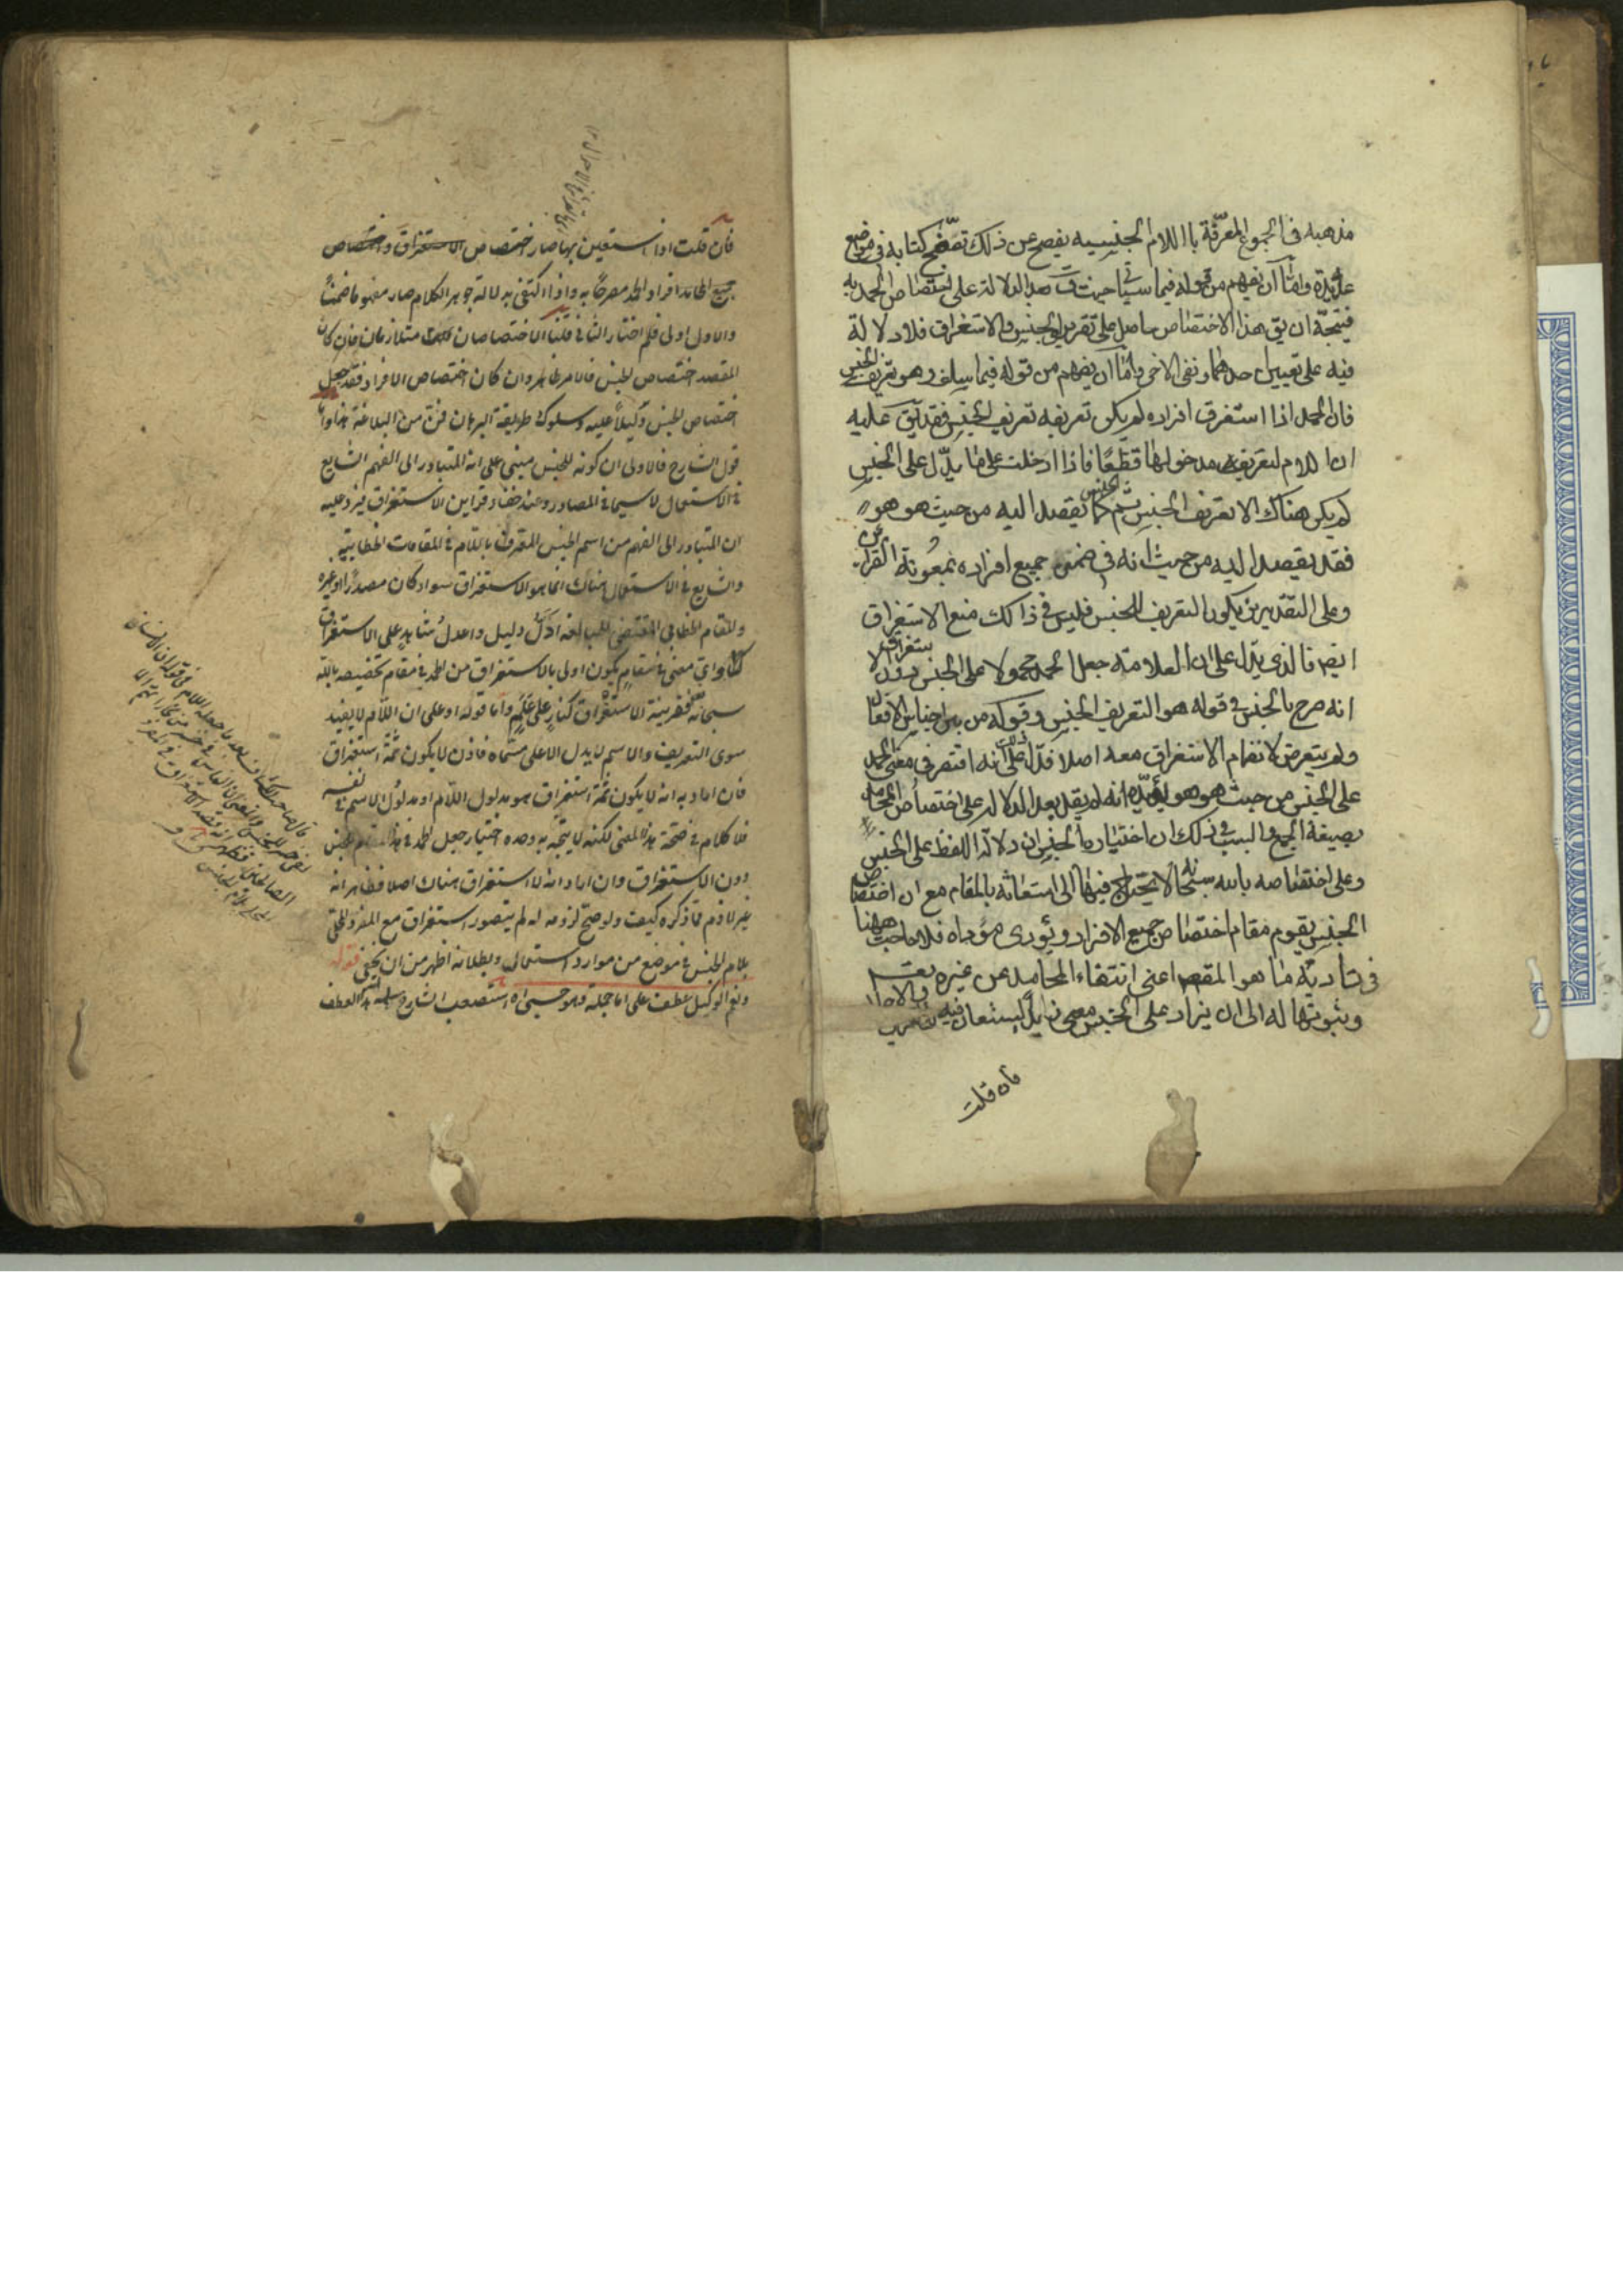 مذهبه فى الجموع المعرّفة باللام الجنسيه يفصح عن ذلك تصفّح كتابه فى مواضع
عديدة واما ان يفهم من قوله فيما سيأتى حيث ق بعد الدلالة على اختصاص الحمد به
فيتجه ان يق هذا الاختصاص حاصل على تقديرى الجنس والاستغراق فلا دلالة
فيه على تعيين احدهما ونفى الاخر واما ان يفهم من قوله فيما سلف وهو تعريف الجنس
فان الحمد اذا استغرق افراده لم يكن تعريفه تعريف الجنس فقد يق عليه
ان اللام لتعريف مدخولها قطعًا فاذا ادخلت على ما يدّل على الجنس
لم يكن هناك الا تعريف الجنس ثم الجنس كما يقصد اليه من حيث هو هو
فقد يقصد اليه من حيث انه فى ضمن جميع افراده بمعُونة القراين
وعلى التقديرين يكون التعريف للجنس فليس فى ذالك منع الاستغراق
ايضا فالذى يدّل على ان العلامة جعل الحمد محمولا على الجنس دون الاستغراق
انه صرح بالجنس فى قوله هو التعريف الجنس وقوله من بين اجناس الافعال
ولم يتعرض لانضمام الاستغراق معه اصلا فدّل ذلك على انه اقتصر فى معنى الحمد
على الجنس من حيث هو هو يؤيّده انه لم يقل بعد الدلالة على اختصاص المحامد
بصيغة الجمع والسبب فى ذلك ان اختياره الجنس ان دلالة اللفظ على الجنس
وعلى اختصاصه بالله سبحانه لا يحتاج فيها الى استعانة بالمقام مع ان اختصاص
الجنس يقوم مقام اختصاص جميع الافراد ويؤدى مؤداه فلا حاجت ههنا
فى تادية ما هو المقصد اعنى انتفاء المحامد عن غيره تعـ
وثبوتها له الى ان يزاد على الجنس معنى زايد يستعان فيه
فان قلت
فان قلت اذا استعين بها صار اختصاص الاستغراق واختصاص
جميع المحامد افراد الحمد مصرحًا به واذا اكتفى بدلالة جوهر الكلام صار مفهوما ضمنًا
والاول اولى فلم اختار الثانى قلنا الاختصاصان متلازمان فان كان
المقصد اختصاص الجنس فالامر ظاهر وان كان اختصاص الافراد فقد جعل
اختصاص الجنس دليلاً عليه وسلوك طريقة البرهان فن من البلاغة هذا واما
قول الشارح فالاولى ان كونه للجنس مبنى على انه المتبادر الى الفهم الشايع
فى الاستعمال لاسيما فى المصادر وعند خفاء قراين الاستغراق فيرد عليه
ان المتبادر الى الفهم من اسم الجنس المعرف باللام فى المقامات الخطابية
والشايع فى الاستعمال هناك انما هو الاستغراق سواء كان مصدرًا او غيره
والمقام الخطابى المقتضى للمبالغه ادل دليل واعدل شاهد على الاستغراق
واى معنى فى مقام يكون اولى بالاستغراق من الحمد فى مقام تخصيصه بالله
سبحانه فقرينة الاستغراق كنار على علم واما قوله او على ان اللام لا يفيد
سوى التعريف والاسم لا يدل الا على مسماه فاذن لا يكون ثمة استغراق
فان اراد به انه لا يكون ثمة استغراق هو مدلول اللام او مدلول الاسم نفسه
فلا كلام فى صحة هذا المعنى لكنه لا يتجه به وحده اختيار جعل الحمد فى هذا المقام للجنس
دون الاستغراق وان اراد انه لا استغراق هناك اصلا فظاهر انه
غير لازم مما ذكره كيف ولو صح لزومه له لم يتصور استغراق مع المفرد المحلى
بلام الجنس فى موضع من موارد استعماله وبطلانه اظهر من ان يخفى قوله
ونعم الوكيل عطف على اما جملة وهو حسبى اه استصعب الشارح هذا العطف